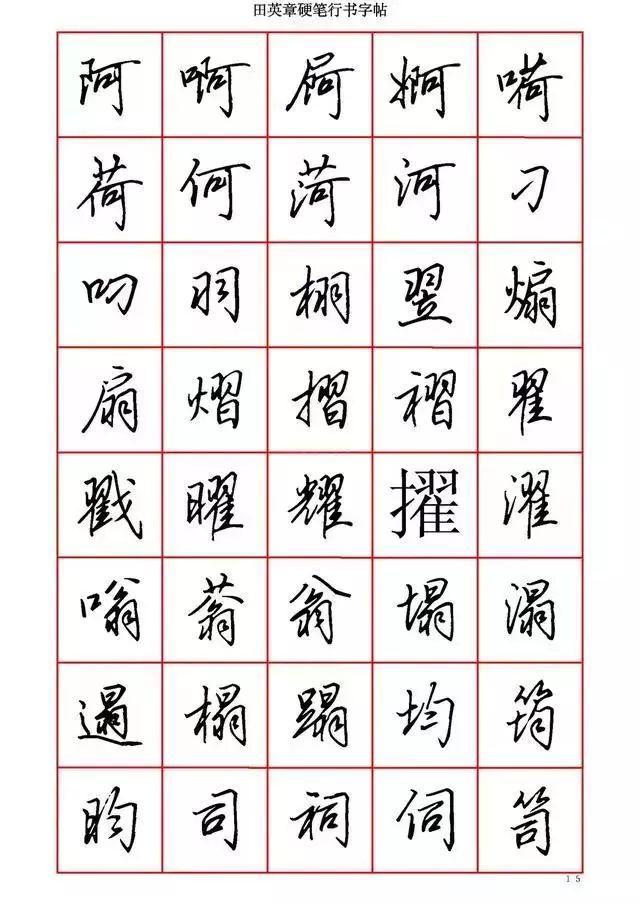 田英章硬笔行书字帖
阿啊屙婀嗬
荷何菏河刁
叨羽栩翌煽
扇熠摺褶翟
戳曜耀擢濯
嗡蓊翁塌溻
遢榻蹋均筠
昀司祠伺笥
15